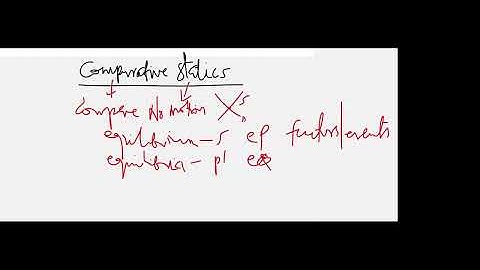 Comparative Statics
Compare No motion
equilibrium - S ep factors/events
equilibria - pl